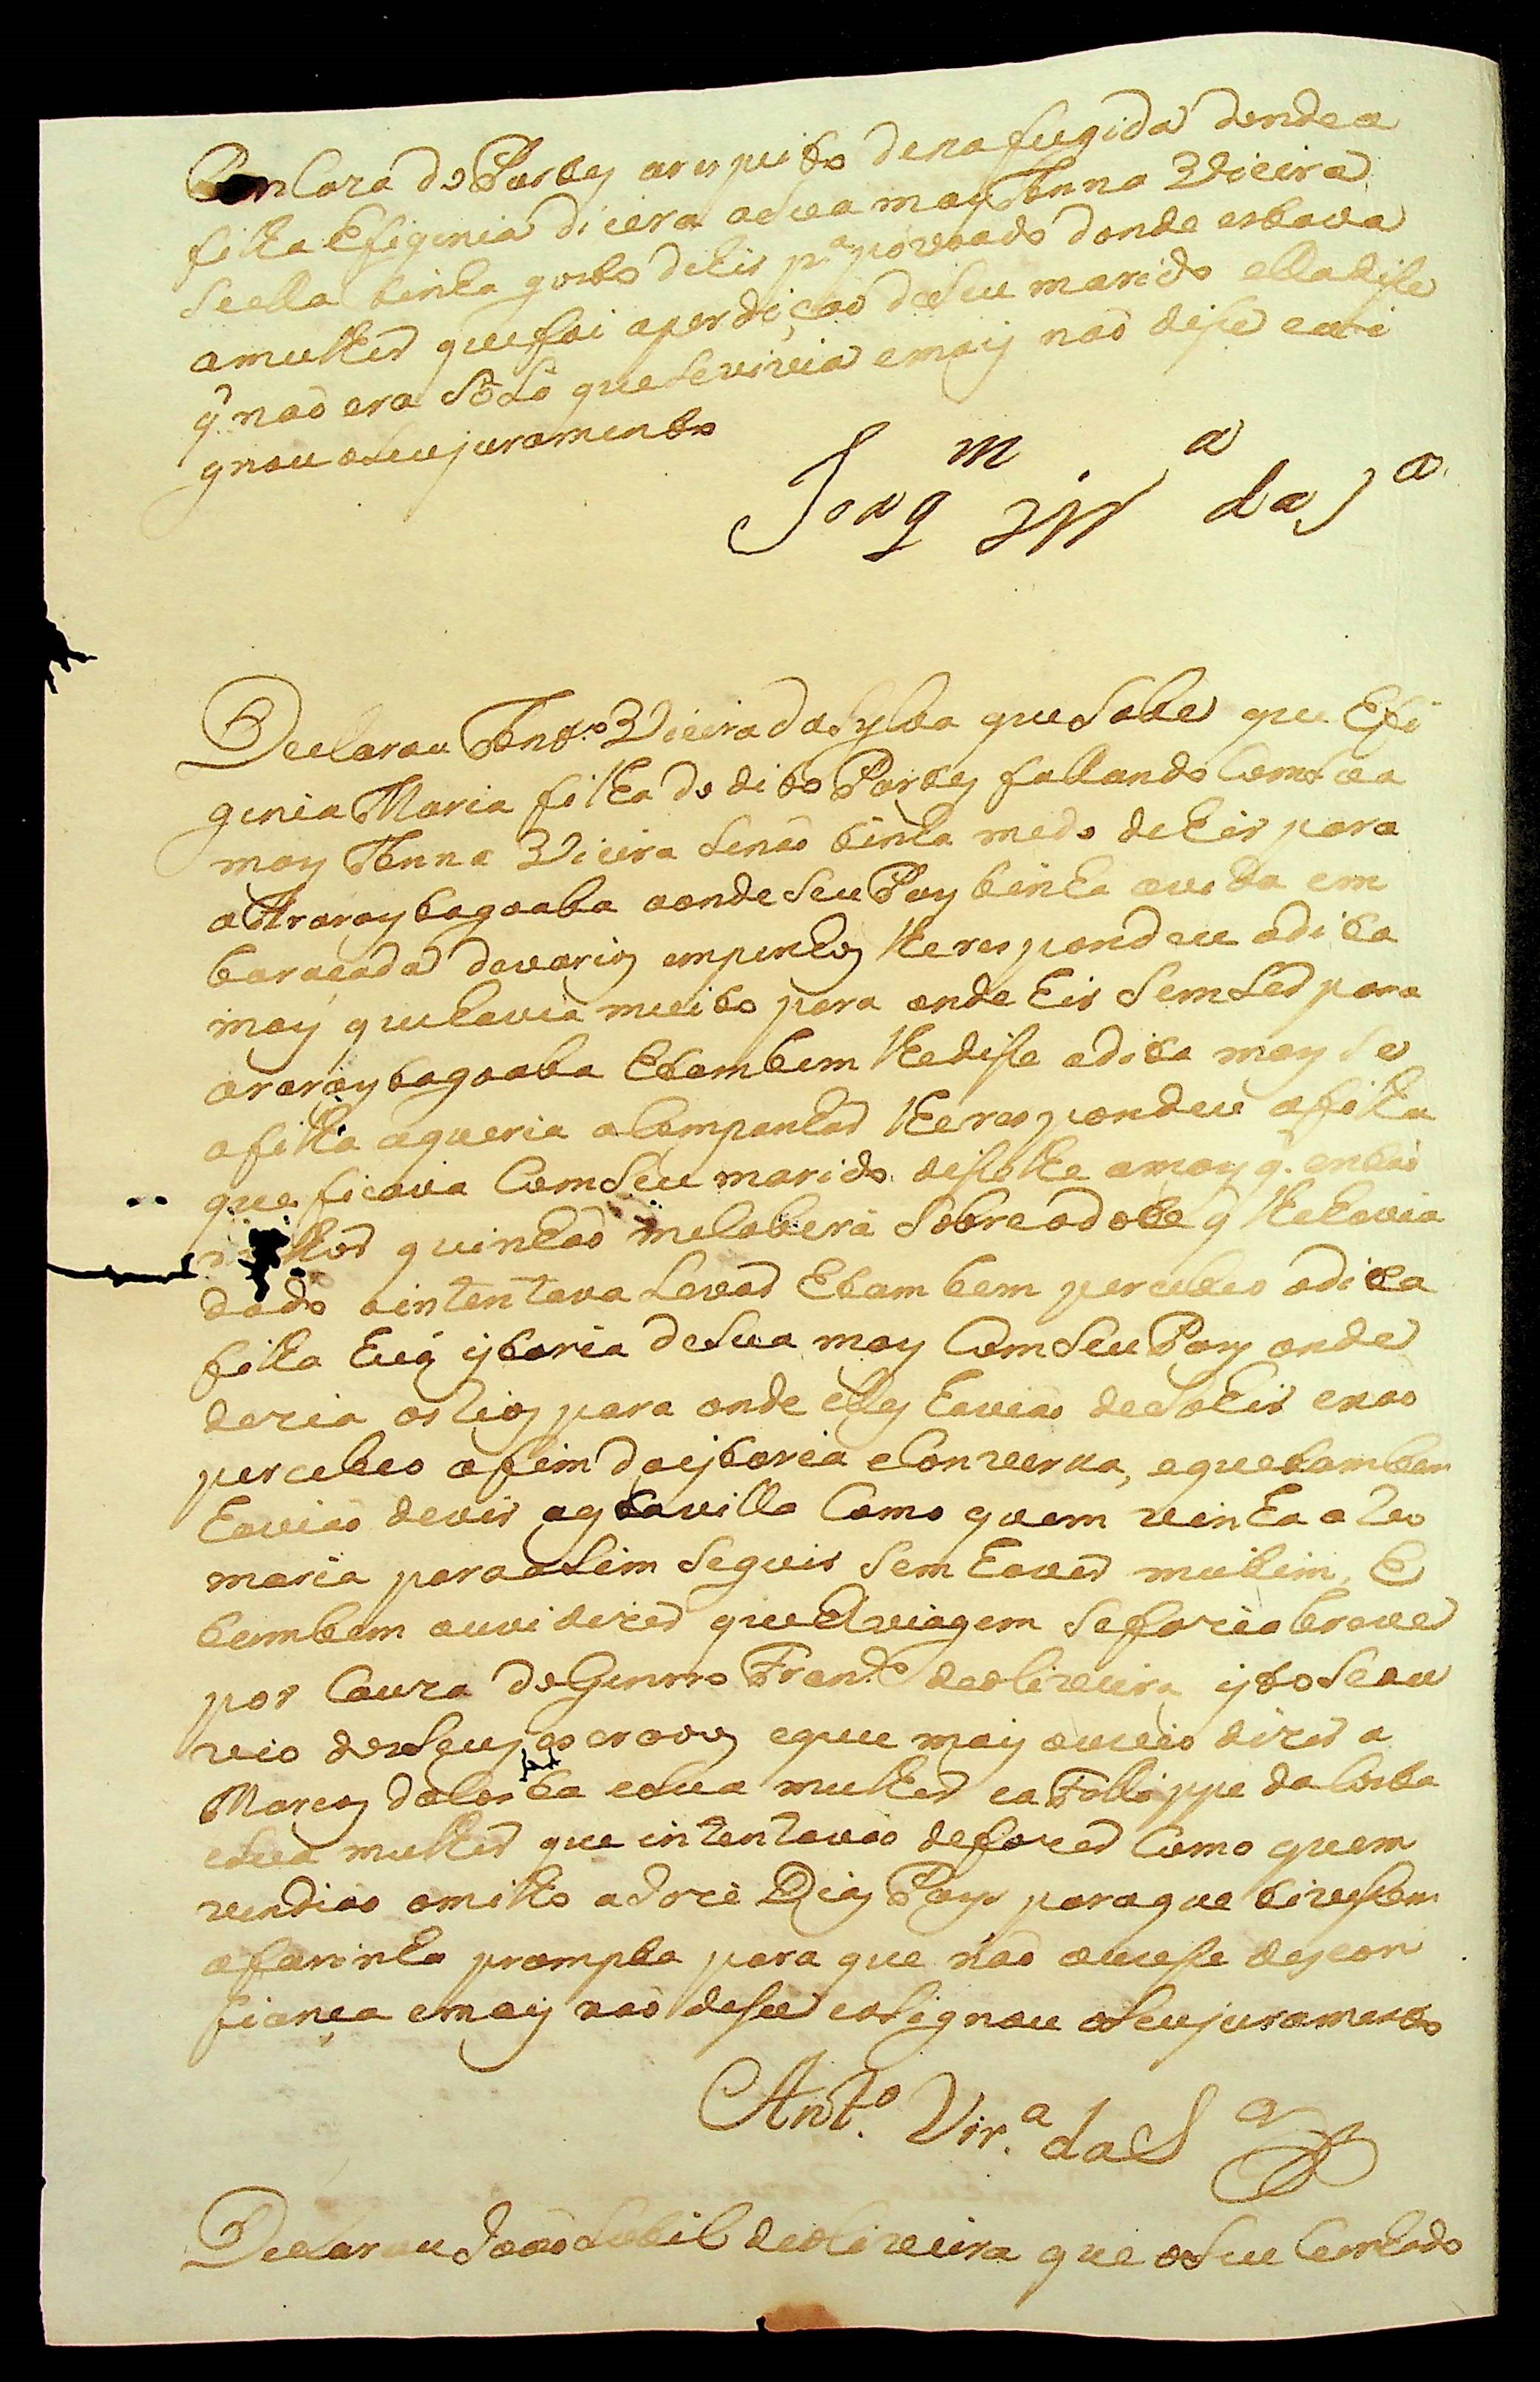 em Caza de Partes arespeito dena fugida donde a
filha Efigenia dicera a sua may Anna Vieira
se ella tinha gosto de hir pª povoado donde estava
a mulher que foi a perdiçaõ de seu marido ella disse
q̃ naõ era So Lo que se viria e mais naõ disse e aSi
gnou o Seu juramento
Joaqᵐ da Sª
Declarou Antº Vieira da Sylva que Sabe que Efi
genia Maria filha do dito Partes fallando Com Sua
may Anna Vieira Senaõ tinha medo de hir para
o Araraytagoaba aonde Seu Pay tinha a vida em
baraçada de varios empenhos lhe respondeu a dita
may que havia muito para onde hir Sem Ser para
araraytagoaba Etambem lhe disse a dita may Se
a filha a queria aCompanhar lhe respondeu a filha
que ficava Com Seu marido disselhe a may q̃ entaõ
quinhaõ me Caberá Sobre o dote q̃ lhe havia
dado o intentava Levar Etambem percebeo a dita
filha huã istoria de Sua may Com Seu Pay onde
dezia os Rios para onde elles haviaõ de Sahir e naõ
percebeo o fim da istoria e Converca, e que tambem
haviaõ de vir a esta villa Como quem vinha a Ro
maria para aSim Seguir Sem haver mutim, E
tembem ouvi dizer que A viagem Se faria breve
por Cauza do Genrro Franᶜº de Oliveira isto Se ou
vio de Seus escravos e que mais ouvio dizer a
Marcos da Costa e Sua mulher e a Fellippe da Costa
e Sua mulher que intentavaõ de fazer Como quem
vendiaõ o milho a Jozè Dias Pays para que tivessem
a farinha prompta para que naõ ouvesse descon
fiança e mais naõ disse e aSignou o Seu juramento
Antº. Vir.ª da Sª
Declarou Joaõ Sobil de Oliveira que o Seu Cunhado